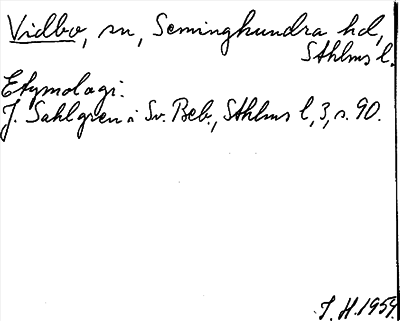 Vidbo, sn, Seminghundra hd,
Sthlms l.
Etymologi:
J. Sahlgren i Sv. Beb., Sthlms l, 3, s. 90.
J. H. 1959.